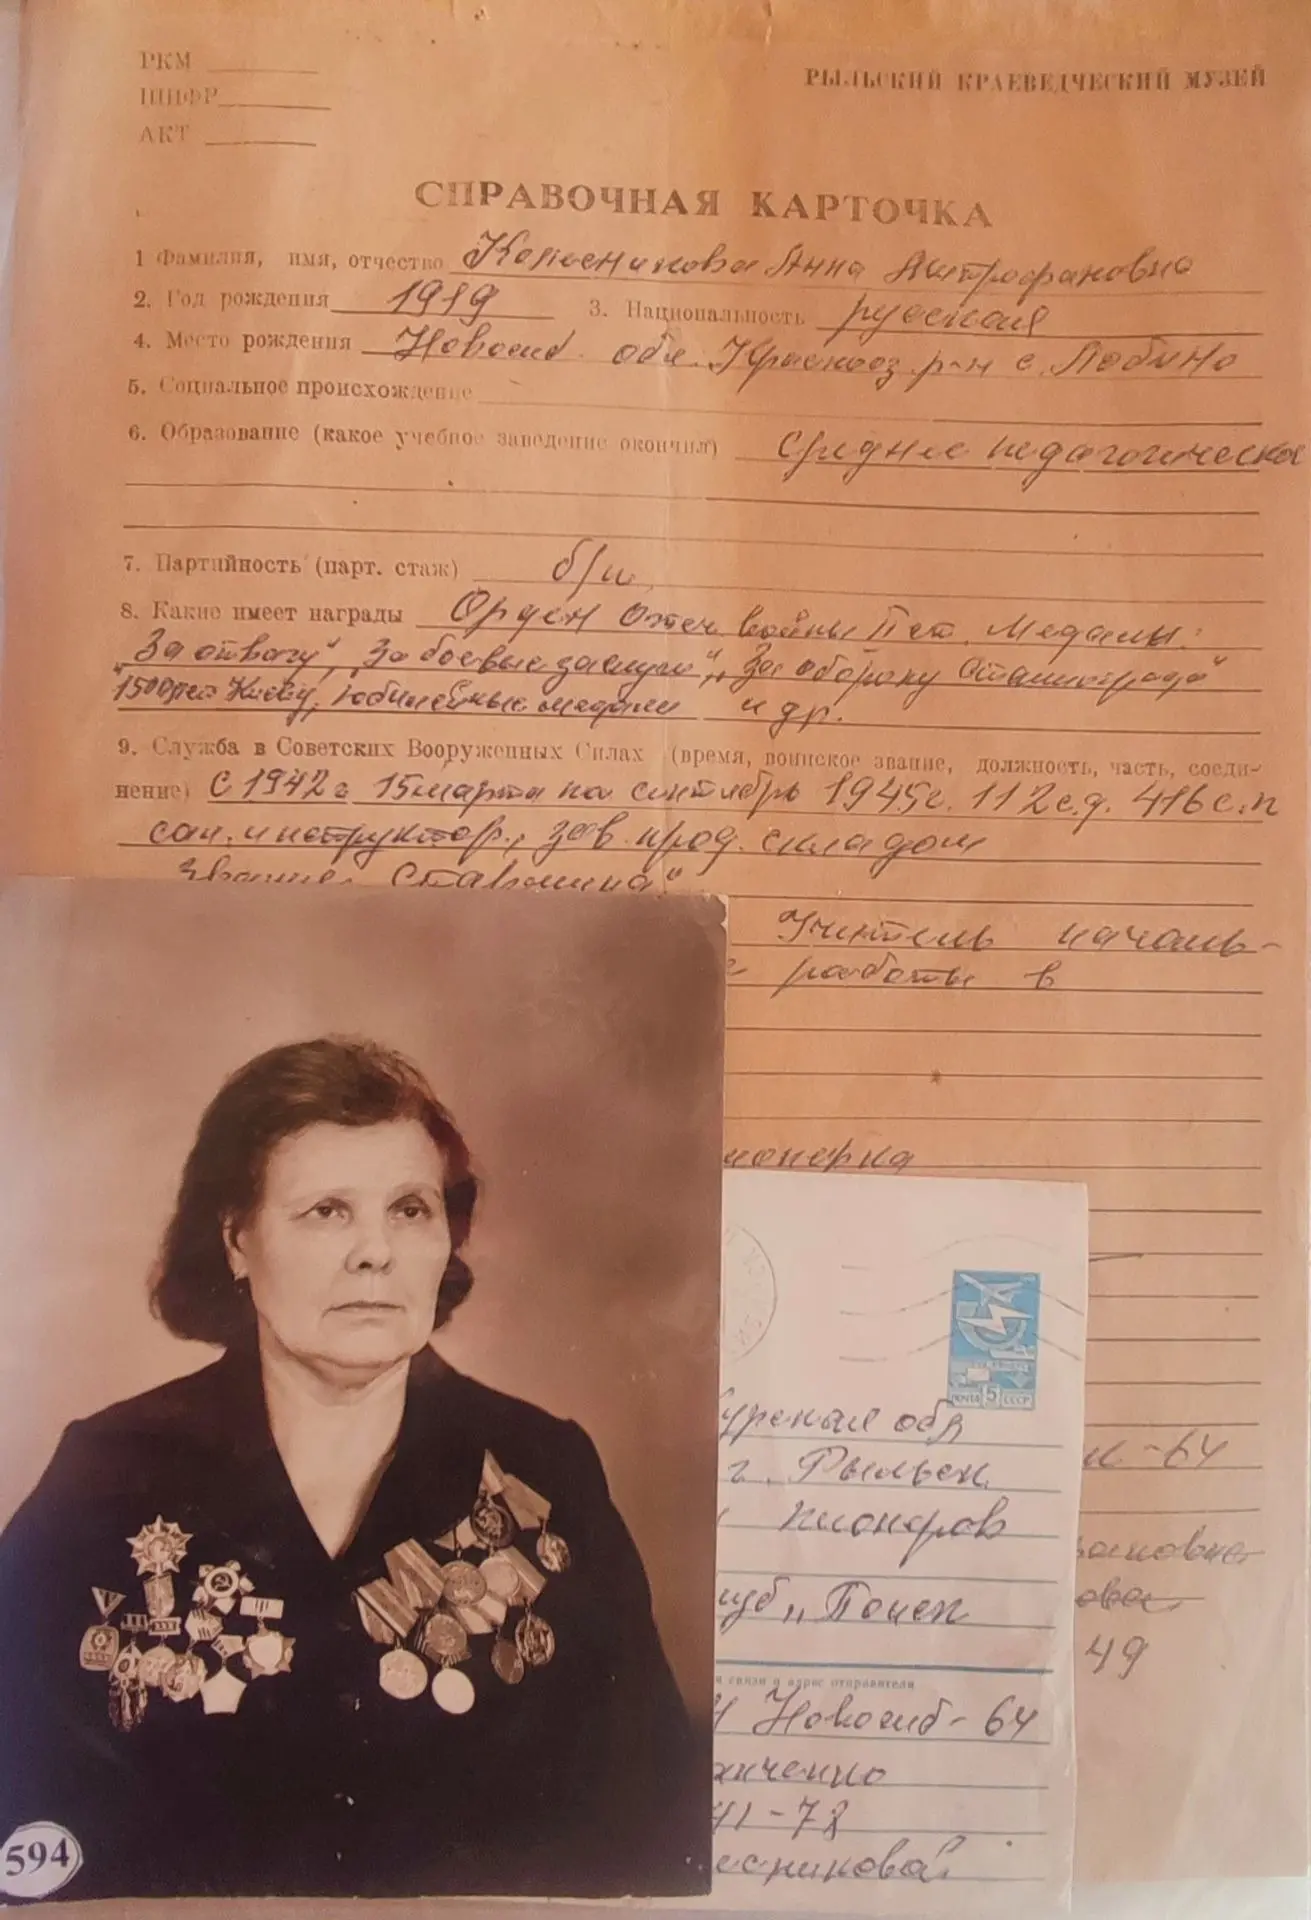 РКМ
ШИФР
АКТ
РЫЛЬСКИЙ КРАЕВЕДЧЕСКИЙ МУЗЕЙ
СПРАВОЧНАЯ КАРТОЧКА
1 Фамилия, имя, отчество Колесникова Анна Митрофановна
2. Год рождения 1919 3. Национальность русская
4. Место рождения Новосиб. обл. Краснооз. р-н с. Лобино
5. Социальное происхождение
6. Образование (какое учебное заведение окончил) среднее педагогическое
7. Партийность (парт. стаж) б/п
8. Какие имеет награды Орден Отеч. войны II ст. Медали:
„За отвагу", „За боевые заслуги", „За оборону Сталинграда"
1500 лет Киеву, юбилейные медали и др.
9. Служба в Советских Вооруженных Силах (время, воинское звание, должность, часть, соеди-
нение) С 1942 г 15 марта по сентябрь 1945 г. 112 с.д. 416 с.п
сан. инструктор, зав. прод. складом
звание „Старшина"
Учитель началь-
работы в
ионерка
ПОЧТА 5 СССР
урская обл
г. Рыльск
пионеров
уб „Поиск
и - 64
ановне
ова
49
я связи и адрес отправителя
Новосиб - 64
анченко
41-78
есниковой
594